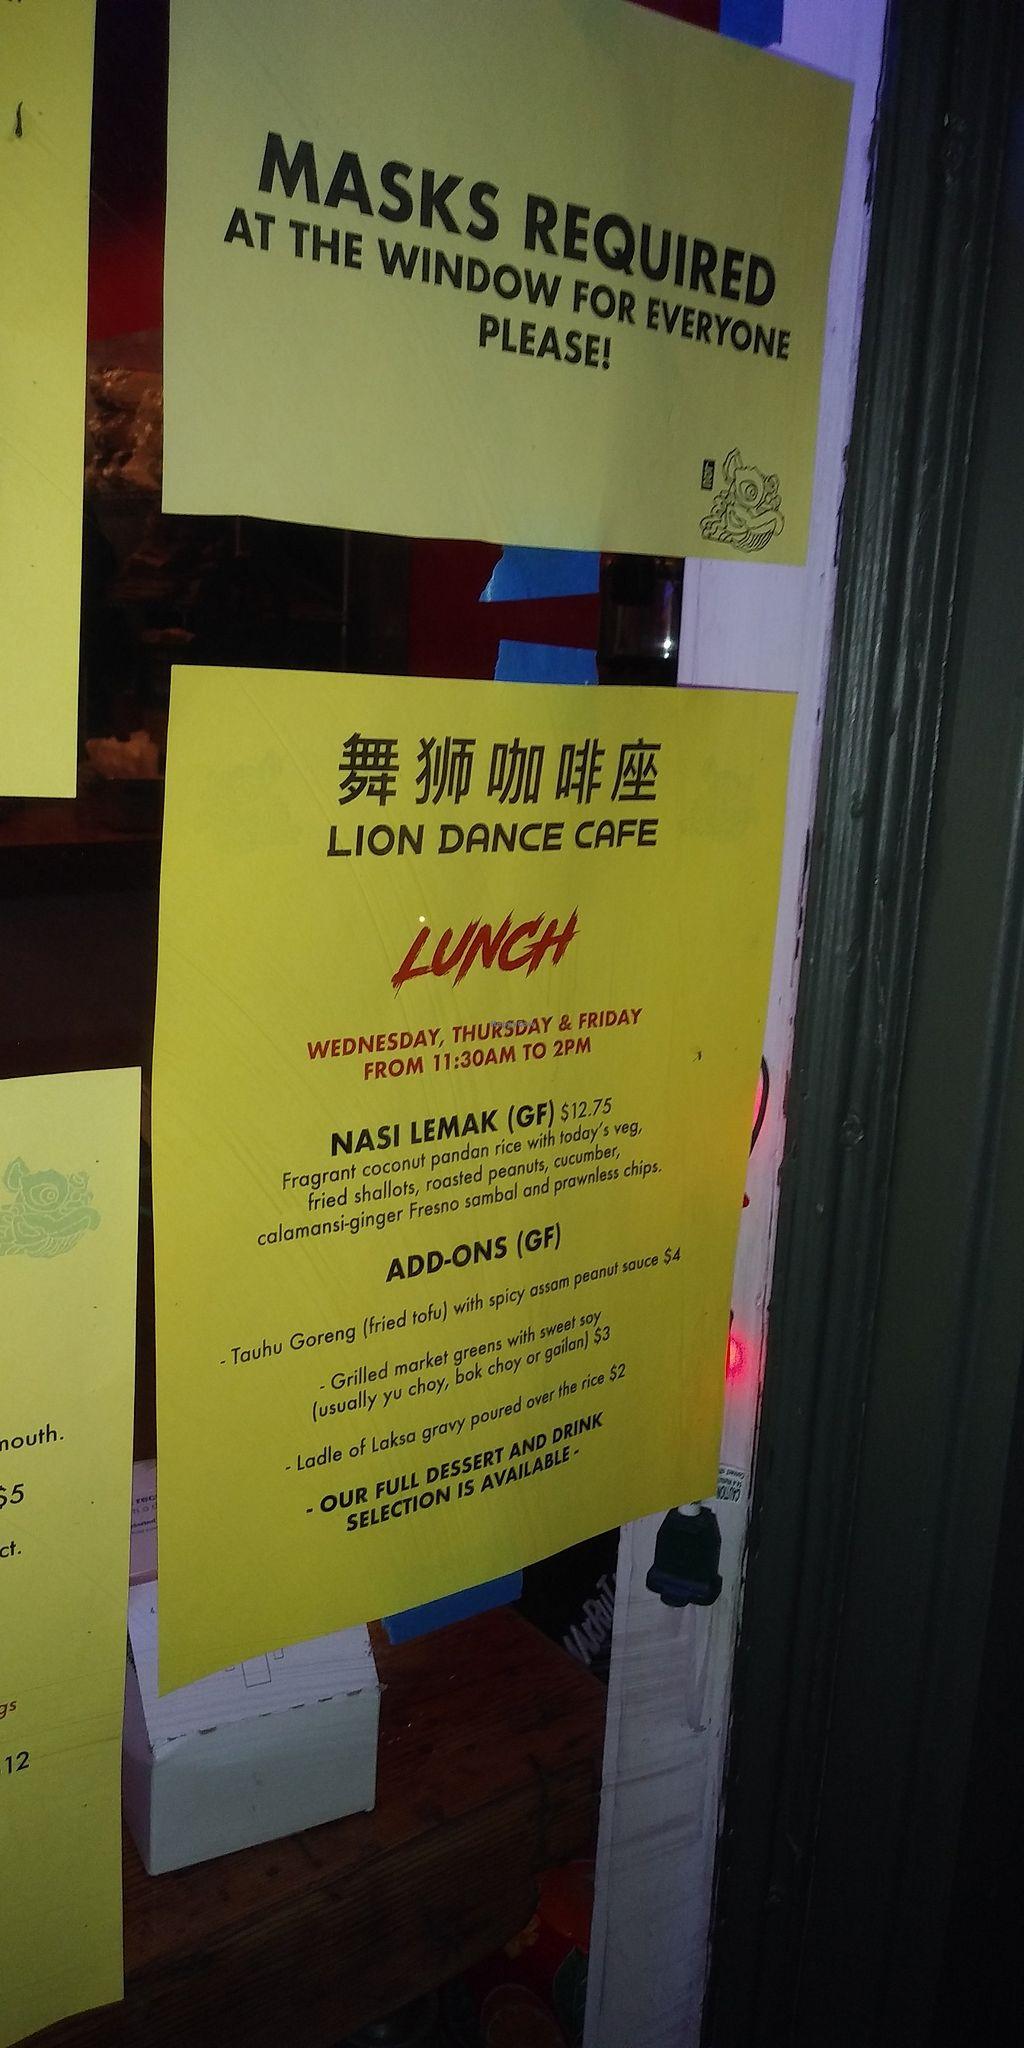 MASKS REQUIRED
AT THE WINDOW FOR EVERYONE
PLEASE!
舞狮咖啡座
LION DANCE CAFE
LUNCH
WEDNESDAY, THURSDAY & FRIDAY
FROM 11:30AM TO 2PM
NASI LEMAK (GF) $12.75
Fragrant coconut pandan rice with today's veg,
fried shallots, roasted peanuts, cucumber,
calamansi-ginger Fresno sambal and prawnless chips.
ADD-ONS (GF)
- Tauhu Goreng (fried tofu) with spicy assam peanut sauce $4
- Grilled market greens with sweet soy
(usually yu choy, bok choy or gailan) $3
- Ladle of Laksa gravy poured over the rice $2
- OUR FULL DESSERT AND DRINK
SELECTION IS AVAILABLE -
mouth.
$5
ct.
gs
12
CAUTION